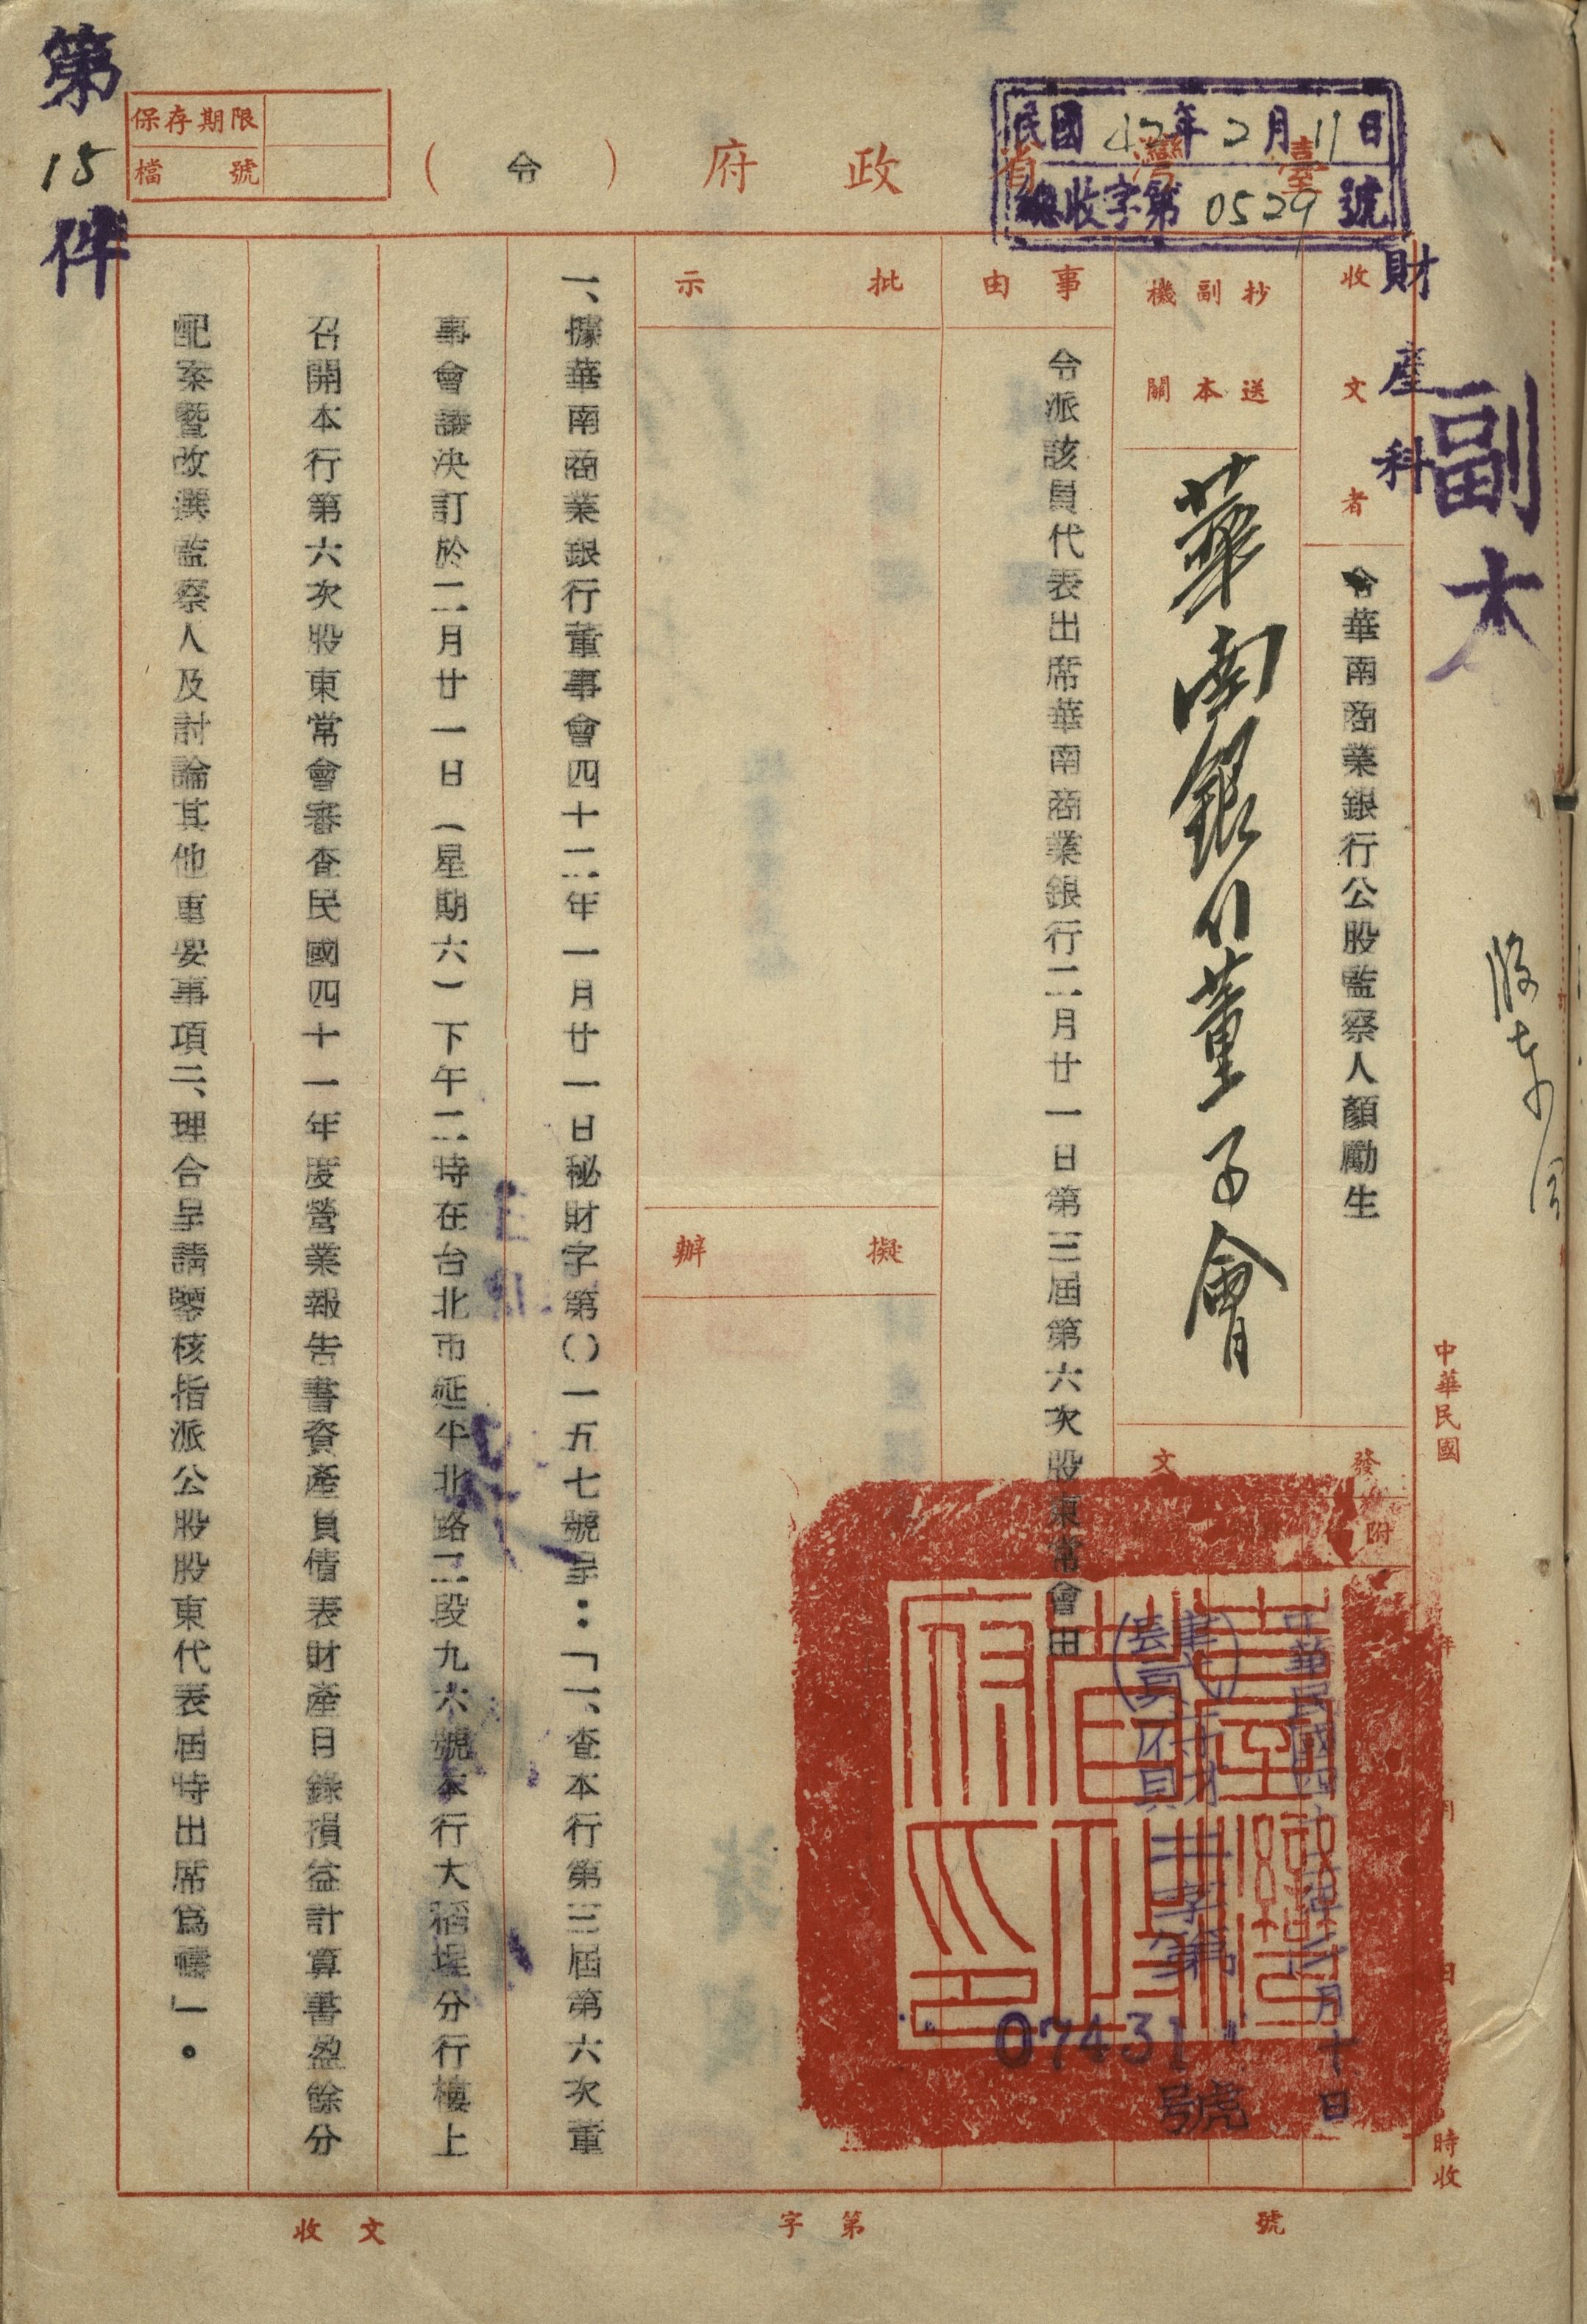 副本
財產科
中華民國 年 月 日 時收
臺灣省政府（令）
民國42年2月11日
總收字第0529號
保存期限
檔號
第15件
收文者
令華南商業銀行公股監察人顏勵生
抄送副本機關
華南銀行董事會
發文
附
中華民國四十二年二月十日
府財二字第
07431
號
臺灣省政府印
事由
令派該員代表出席華南商業銀行二月廿一日第三屆第六次股東常會由
批示
擬辦
一、據華南商業銀行董事會四十二年一月廿一日秘財字第〇一五七號呈：「一、查本行第三屆第六次董
事會議決訂於二月廿一日（星期六）下午二時在台北市延平北路二段九六號本行大稻埕分行樓上
召開本行第六次股東常會審查民國四十一年度營業報告書資產負債表財產目錄損益計算書盈餘分
配案暨改選監察人及討論其他重要事項二、理合呈請鑒核指派公股股東代表屆時出席為禱」。
收文 字第 號